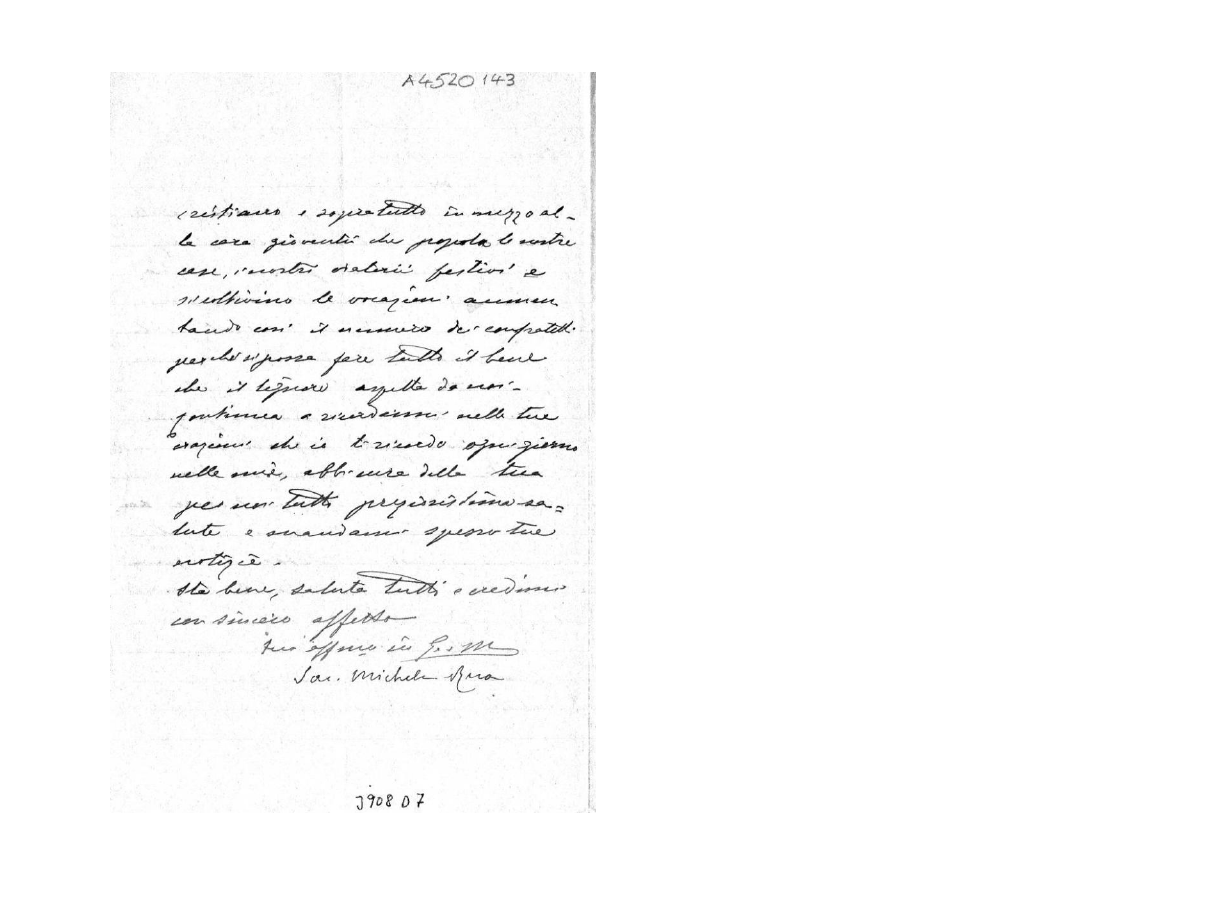 A4520143
cristiano e sopratutto in mezzo al-
la cara gioventù che popola le nostre
case, i nostri oratorii festivi e
si coltivino le vocazioni aumen
tando così il numero dei confratelli
perché si possa fare tutto il bene
che il Signore aspetta da noi.
Continua a ricordarmi nelle tue
orazioni che io ti ricordo ogni giorno
nelle mie, abbi cura della tua
per noi tutti preziosissima sa=
lute e mandami spesso tue
notizie.
Sta bene, saluta tutti e credimi
con sincero affetto
tuo affmo in G. e M.
Sac. Michele Rua
3908 D7